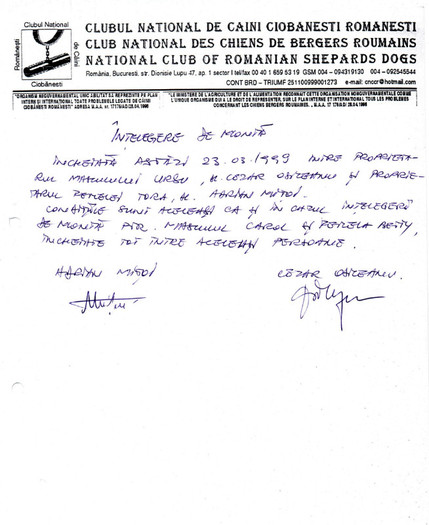 Clubul National
Românești
de Caini
Ciobănesti
CLUBUL NATIONAL DE CAINI CIOBANESTI ROMANESTI
CLUB NATIONAL DES CHIENS DE BERGERS ROUMAINS
NATIONAL CLUB OF ROMANIAN SHEPARDS DOGS
România, Bucuresti. str. Dionisie Lupu 47, ap. 1 sector I tel/fax 00 40 1 659 53 19 GSM 004 – 094319130 004 – 092545544
CONT BRD – TRIUMF 251100999001273 e-mail: cnccr@hotmail.com
"ORGANISM NEGUVERNAMENTAL UNIC ABILITAT SA REPREZINTE PE PLAN
INTERN SI INTERNATIONAL TOATE PROBLEMELE LEGATE DE CAINII
CIOBANESTI ROMANESTI"
"LE MINISTERE DE L'AGRICULTURE ET DE L'ALIMENTATION RECONNAIT CETTE ORGANISATION NONGOUVERNEMENTALE COMME
L'UNIQUE ORGANISME QUI A LE DROIT DE REPRESENTER, SUR LE PLAN INTERNE ET INTERNATIONAL TOUS LES PROBLEMES
CONCERNANT LES CHIENS BERGERS ROUMAINS.
ÎNȚELEGERE DE MONTĂ
ÎNCHEIATĂ ASTĂZI 23.03.1999 ÎNTRE PROPRIETA-
RUL MASCULULUI URSU, CEZAR OBICEANU ȘI PROPRIE-
TARUL FEMELEI TORA, ADRIAN MIȚOI.
CONDIȚIILE SUNT ACELEAȘI CA ȘI ÎN CAZUL ÎNȚELEGERII
DE MONTĂ PTR. MASCULUL CAROL ȘI FEMELA BETTY,
ÎNCHEIATE TOT ÎNTRE ACELEAȘI PERSOANE.
ADRIAN MIȚOI CEZAR OBICEANU.